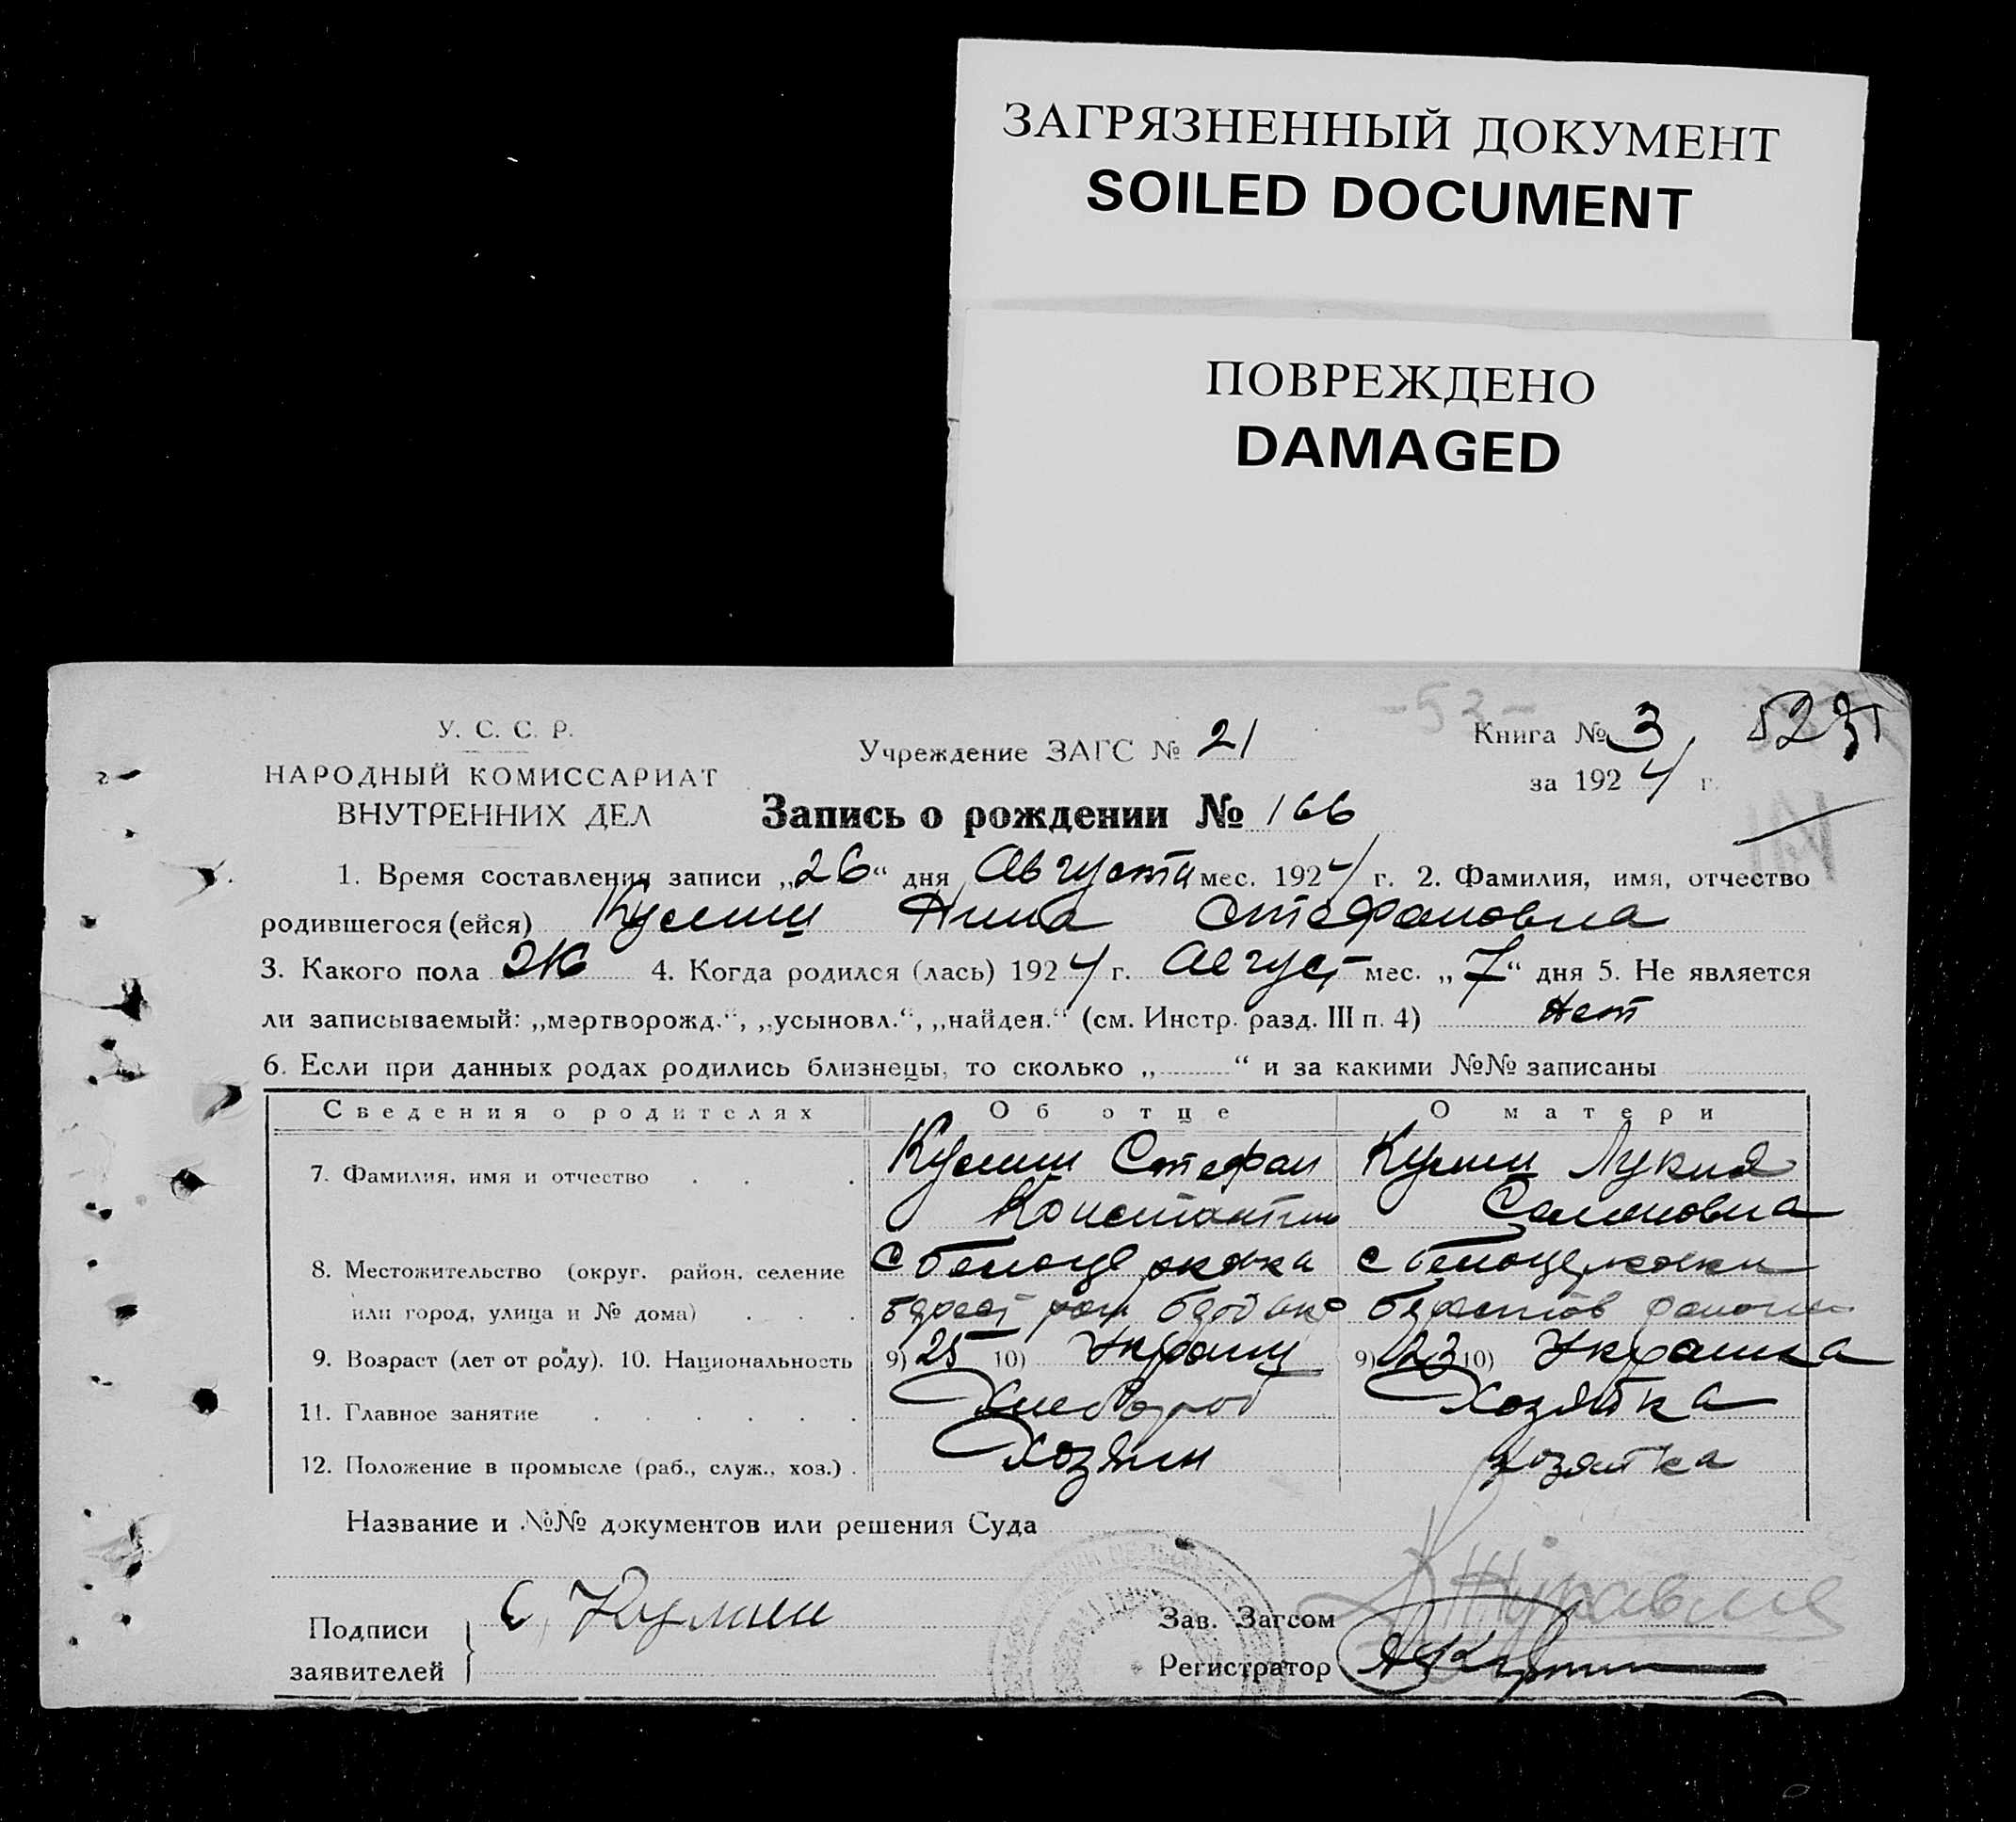 ЗАГРЯЗНЕННЫЙ ДОКУМЕНТ
SOILED DOCUMENT
ПОВРЕЖДЕНО
DAMAGED
-53-
У. С. С. Р.
НАРОДНЫЙ КОМИССАРИАТ
ВНУТРЕННИХ ДЕЛ
Учреждение ЗАГС № 21
Книга № 3
за 1924 г.
Запись о рождении № 166
1. Время составления записи „26“ дня Августа мес. 1924 г. 2. Фамилия, имя, отчество
родившегося (ейся) Кулиш Анна Стефановна
3. Какого пола Ж 4. Когда родился (лась) 1924 г. Август мес. „7“ дня 5. Не является
ли записываемый: „мертворожд.“, „усыновл.“, „найден.“ (см. Инстр. разд. III п. 4) Нет
6. Если при данных родах родились близнецы, то сколько „ “ и за какими №№ записаны
Сведения о родителях Об отце О матери
7. Фамилия, имя и отчество Кулиш Стефан Кулиш Лукия
Константин Семеновна
8. Местожительство (округ. район, селение с Белоцерковка с Белоцерковки
или город, улица и № дома)
9. Возраст (лет от роду). 10. Национальность 9) 25 10) Украинц 9) 23 10) Украинка
11. Главное занятие Хлебороб Хозяйка
12. Положение в промысле (раб., служ., хоз.) Хозяин хозяйка
Название и №№ документов или решения Суда
Подписи
заявителей С. Кулиш
Зав. Загсом
Регистратор